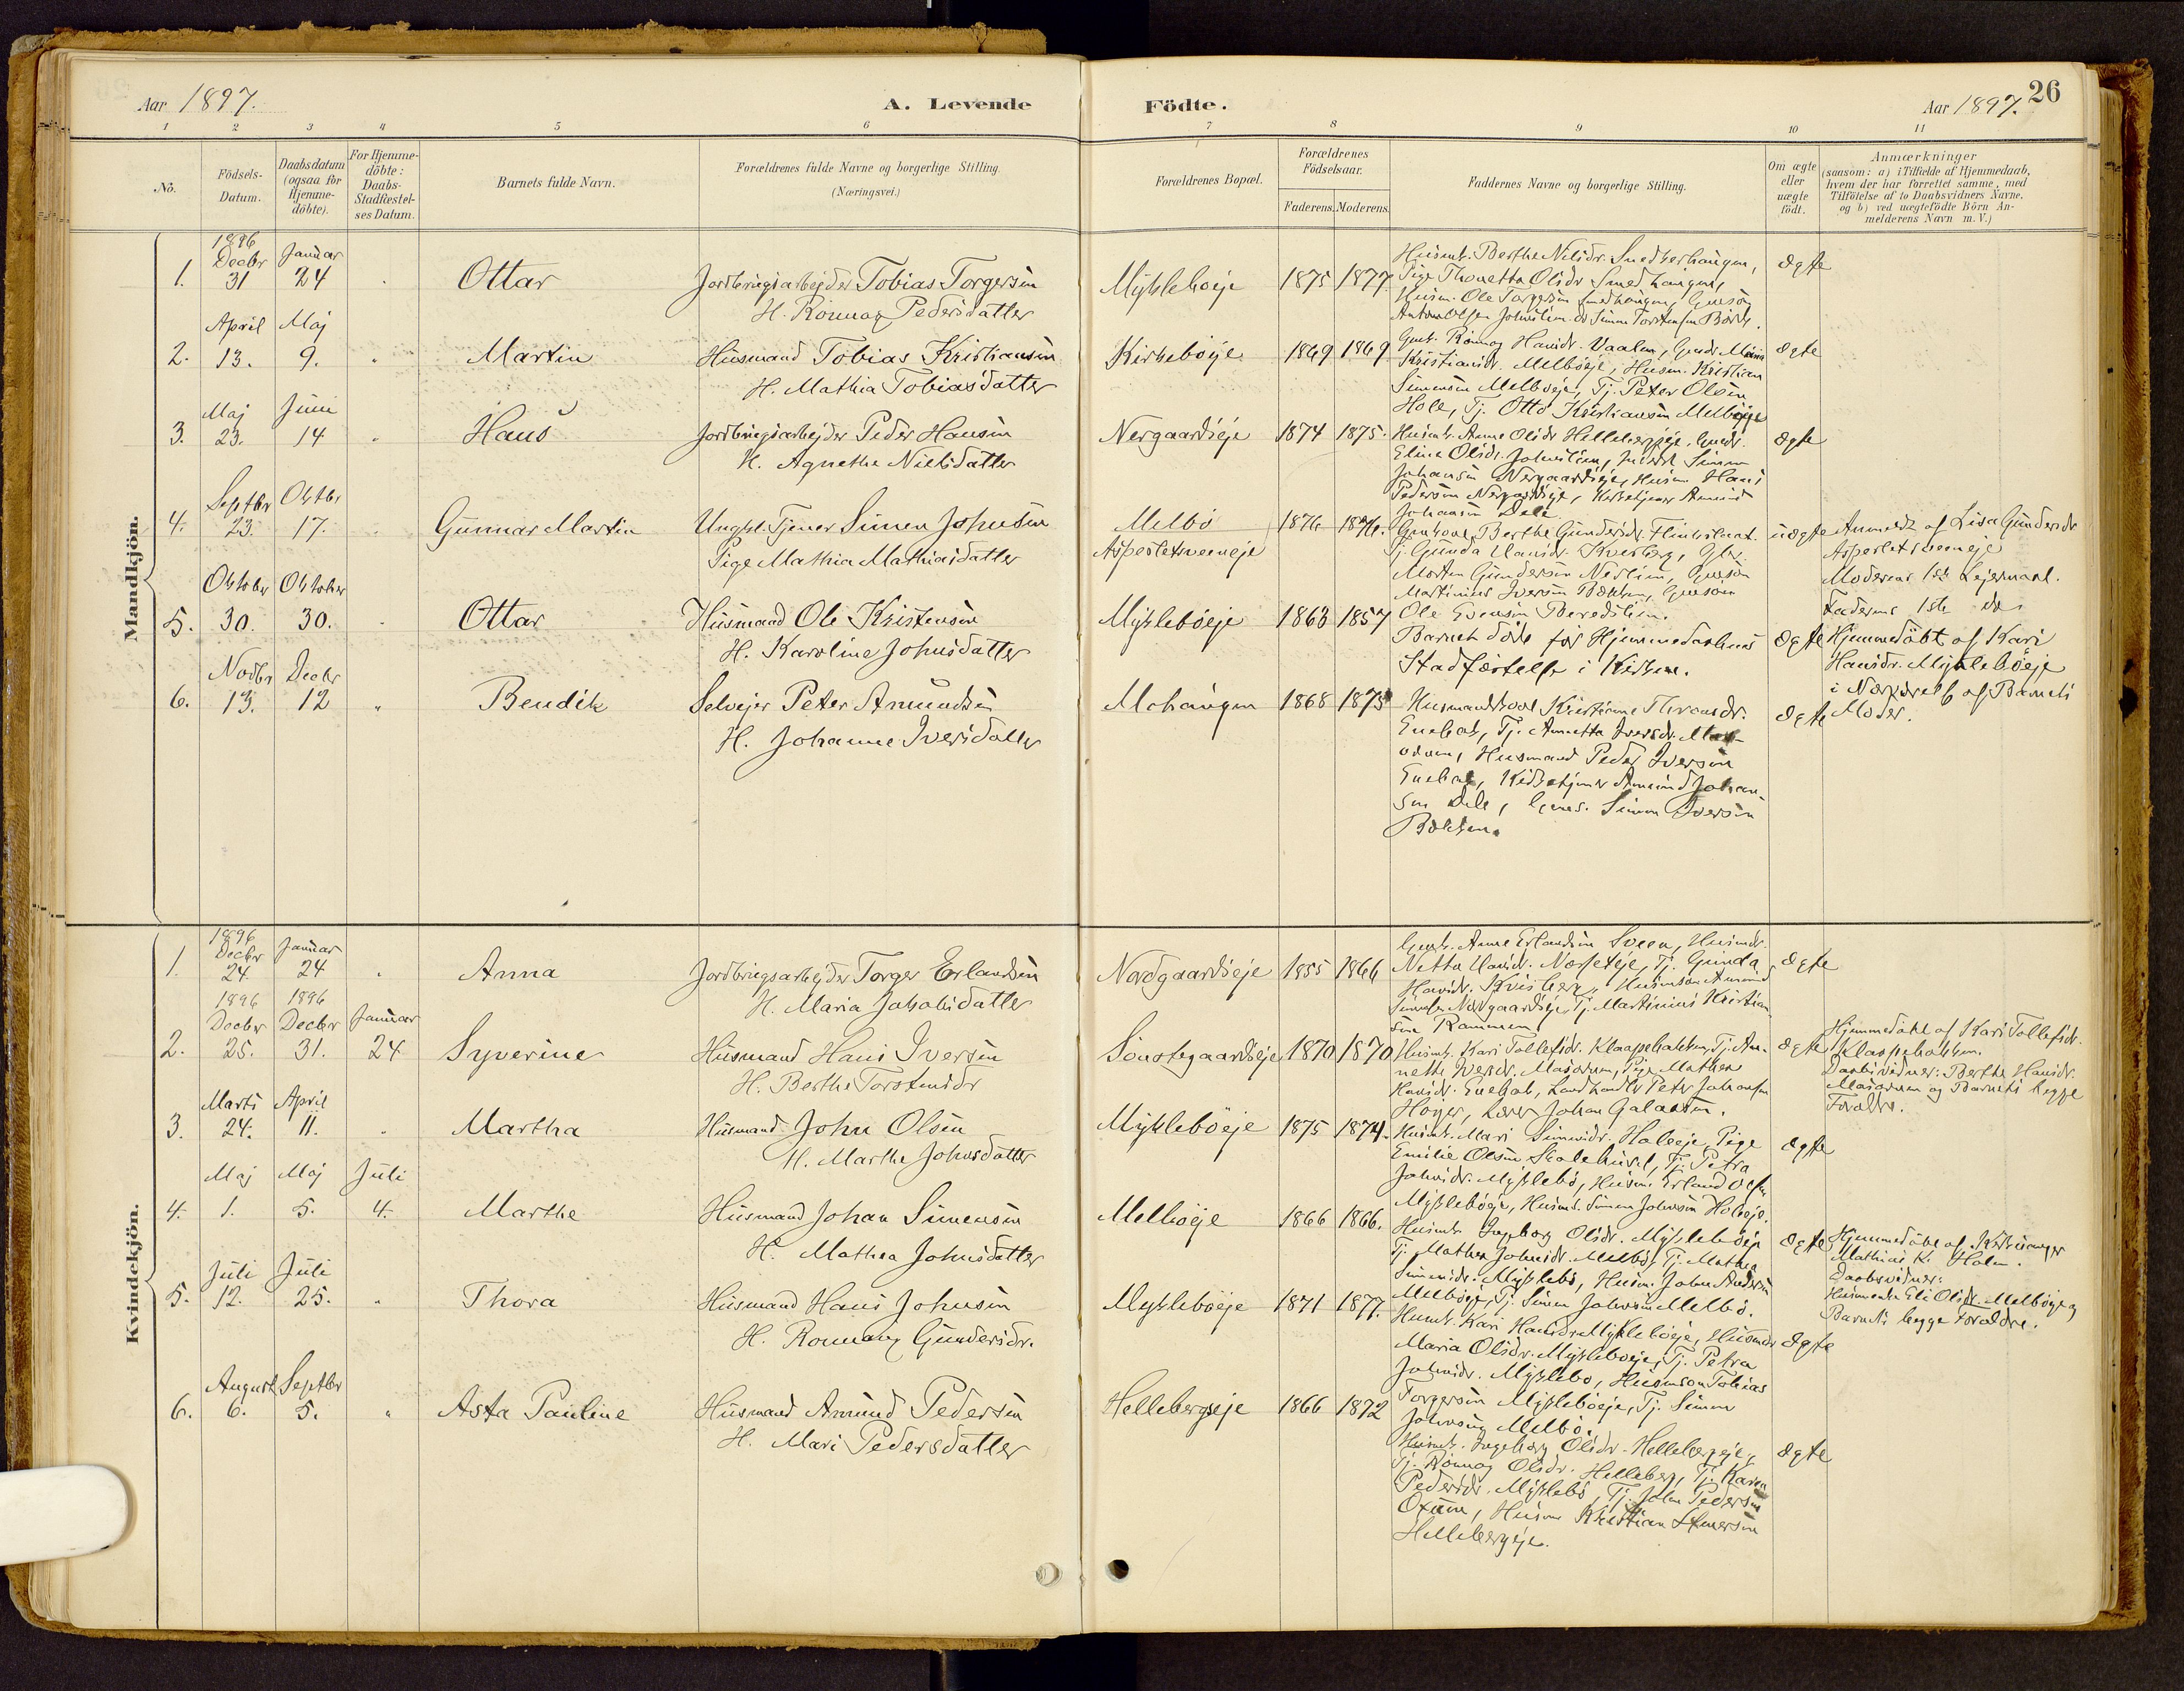 Aar 1897.
A. Levende
Födte.
Aar 1897.
26
1 2 3 4 5 6 7 8 9 10 11
No.
Födsels-Datum.
Daabsdatum (ogsaa for Hjemme-döbte).
For Hjemme-döbte: Daabs-Stadfæstel-ses Datum.
Barnets fulde Navn.
Forældrenes fulde Navne og borgerlige Stilling.
(Næringsvei.)
Forældrenes Bopæl.
Forældrenes Födselsaar.
Faderens. Moderens.
Faddernes Navne og borgerlige Stilling.
Om ægte eller uægte födt.
Anmærkninger
(saasom: a) i Tilfælde af Hjemmedaab,
hvem der har forrettet samme, med
Tilföielse af to Daabsvidners Navne.
og b) ved uægtefödte Börn An-
melderens Navn m. V.)
Mandkjön.
1896
Decbr Januar
1. 31 24 Ottar Jordbrugsarbejder Tobias Torgersen
H. Rönnog Pedersdatter
Mykleböeje 1875 1877
Husmk. Berthe Nilsdr. Smedshaugen,
Pige Thonetta Olsdr Smedhaugen,
Husm. Ole Torgersen Smedhaugen, Gaards.
Anton Olsen
ægte
April Maj
2. 13. 9. " Martin Husmand Tobias Kristiansen
H. Mathia Tobiasdatter
Kirkeböeje 1869 1869
Rönnog Hansdr. Vaalen,
Kristiansdr. Melböeje, Husm. Kristian
Simensen Melböeje, Tj. Peter Olsen
Hole, Tj. Otto Kristiansen Melböeje
ægte
Maj Juni
3. 23. 14 " Hans Jordbrugsarbejder Peder Hansen
H. Agnethe Nielsdatter
Nergaardseje 1874 1875.
Husmk. Anne Olsdr Hellebergeje,
Eline Olsdr. Simen
Johansen Nergaardseje, Husm. Hans
Pedersen Nergardseje, Kirketjener Amund
Johansen Dele
ægte
Septbr Oktbr
4. 23. 17. " Gunnar Martin Ungkl. Tjener Simen Johnsen
Pige Mathia Mathiasdatter
Melbö
Aspesletsveeneje
1876 1876.
Berthe Gundersdr.
Tj. Gunda Hansdr. Kvisberg,
Morten Gundersen
Martinius Iversen Bakken,
Ole Evensen
uægte
Anmeldt af Lisa Gundersdr
Aspesletsveeneje
Moderens 1ste Lejermaal.
Faderens 1ste do
Oktober Oktober
5. 30. 30. Ottar Husmand Ole Kristensen
H. Karoline Johnsdatter
Mykleböeje 1863 1857
Barnet döde för Hjemmedaabens
Stadfæstelse i Kirken.
ægte
Hjemmedöbt af Kari
Hansdr. Mykleböeje
i Nærværelse af Barnets
Moder.
Novbr Decbr
6. 13. 12 " Bendik Selvejer Peter Amundsen
H. Johanne Iversdatter
Mohaugen 1868 1875
Husmandskone Kristianne
Enebak, Tj. Annetta Iversdr.
Husmand Peder Iversen
Enebak, Kirketjener Amund Johan-
sen Dele, Simen Iversen
Bakken.
ægte
Kvindekjön.
1896
Decbr Januar
1. 24. 24 " Anna Jordbrugsarbejder Torger Erlandsen
H. Maria Jakobsdatter
Nordgaardseje 1855 1866
Anne Erlandsen Sveen,
Netta Hansdr. Tj. Gunda
Hansdr. Kvisberg, Husmson Amund
Simensen Nordgaardseje, Tj. Martinius Kristian-
sen Rammen
ægte
1896 1896
Decbr Decbr Januar
2. 25. 31. 24 Syverine Husmand Hans Iversen
H. Berthe Torstensdr
Sönstegaardseje 1870 1870
Husmk. Kari Tollefsdr. Klaapebakken, Tj. An-
nette Iversdr. Masarum, Pige Mathea
Hansdr. Enebak, Landhandler Peter Johansen
Höyer, Lærer Johan Galaasen.
ægte
Hjemmedöbt af Kari Tollefsdr.
Klaapebakken.
Daabsvidner: Berthe Hansdr.
Masarum og Barnets begge
Forældre.
Marts April
3. 24. 11. " Martha Husmand John Olsen
H. Marthe Johnsdatter
Mykleböeje 1875 1874.
Husmk. Mari Simensdr. Holeeje, Pige
Emilie Olsen Skolehuset, Tj. Petra
Johnsdr. Myklebö, Husm. Erland Olsen
Mykleböeje, Husms. Simen Johnsen Holeeje.
ægte
Maj Maj Juli
4. 1. 5. 4. Marthe Husmand Johan Simensen
H. Mathea Johnsdatter
Melböeje 1866 1866.
Husmk. Ingeborg Olsdr. Mykleböeje
Tj. Mathea Johnsdr. Melbö, Tj. Mathea
Simensdr. Myklebö, Husm. John Andersen
Melböeje, Tj. Simen Johnsen Melbö.
ægte
Hjemmedöbt af Kirkesanger
Mathias K. Holm.
Daabsvidner:
Husmenke Eli Olsdr. Melböeje og
Barnets begge Forældre.
Juli Juli
5. 12. 25. " Thora Husmand Hans Johnsen
H. Rönnaug Gundersdr.
Mykleböeje 1871 1877.
Husmk. Kari Hansdr Mykleböeje, Husmdr
Maria Olsdr. Mykleböeje, Tj. Petra
Johnsdr. Myklebö, Husmson Tobias
Torgersen Mykleböeje, Tj. Simen
Johnsen Melbö.
ægte
August Septbr
6. 6. 5. " Asta Pauline Husmand Amund Pedersen
H. Mari Pedersdatter
Hellebergseje 1866 1872
Husmk. Ingeborg Olsdr. Hellebergeje,
Tj. Rönnog Olsdr. Helleberg, Tj. Karen
Pedersdr. Myklebö, Tj. John Pedersen
Husm Kristian
Hellebergeje.
ægte